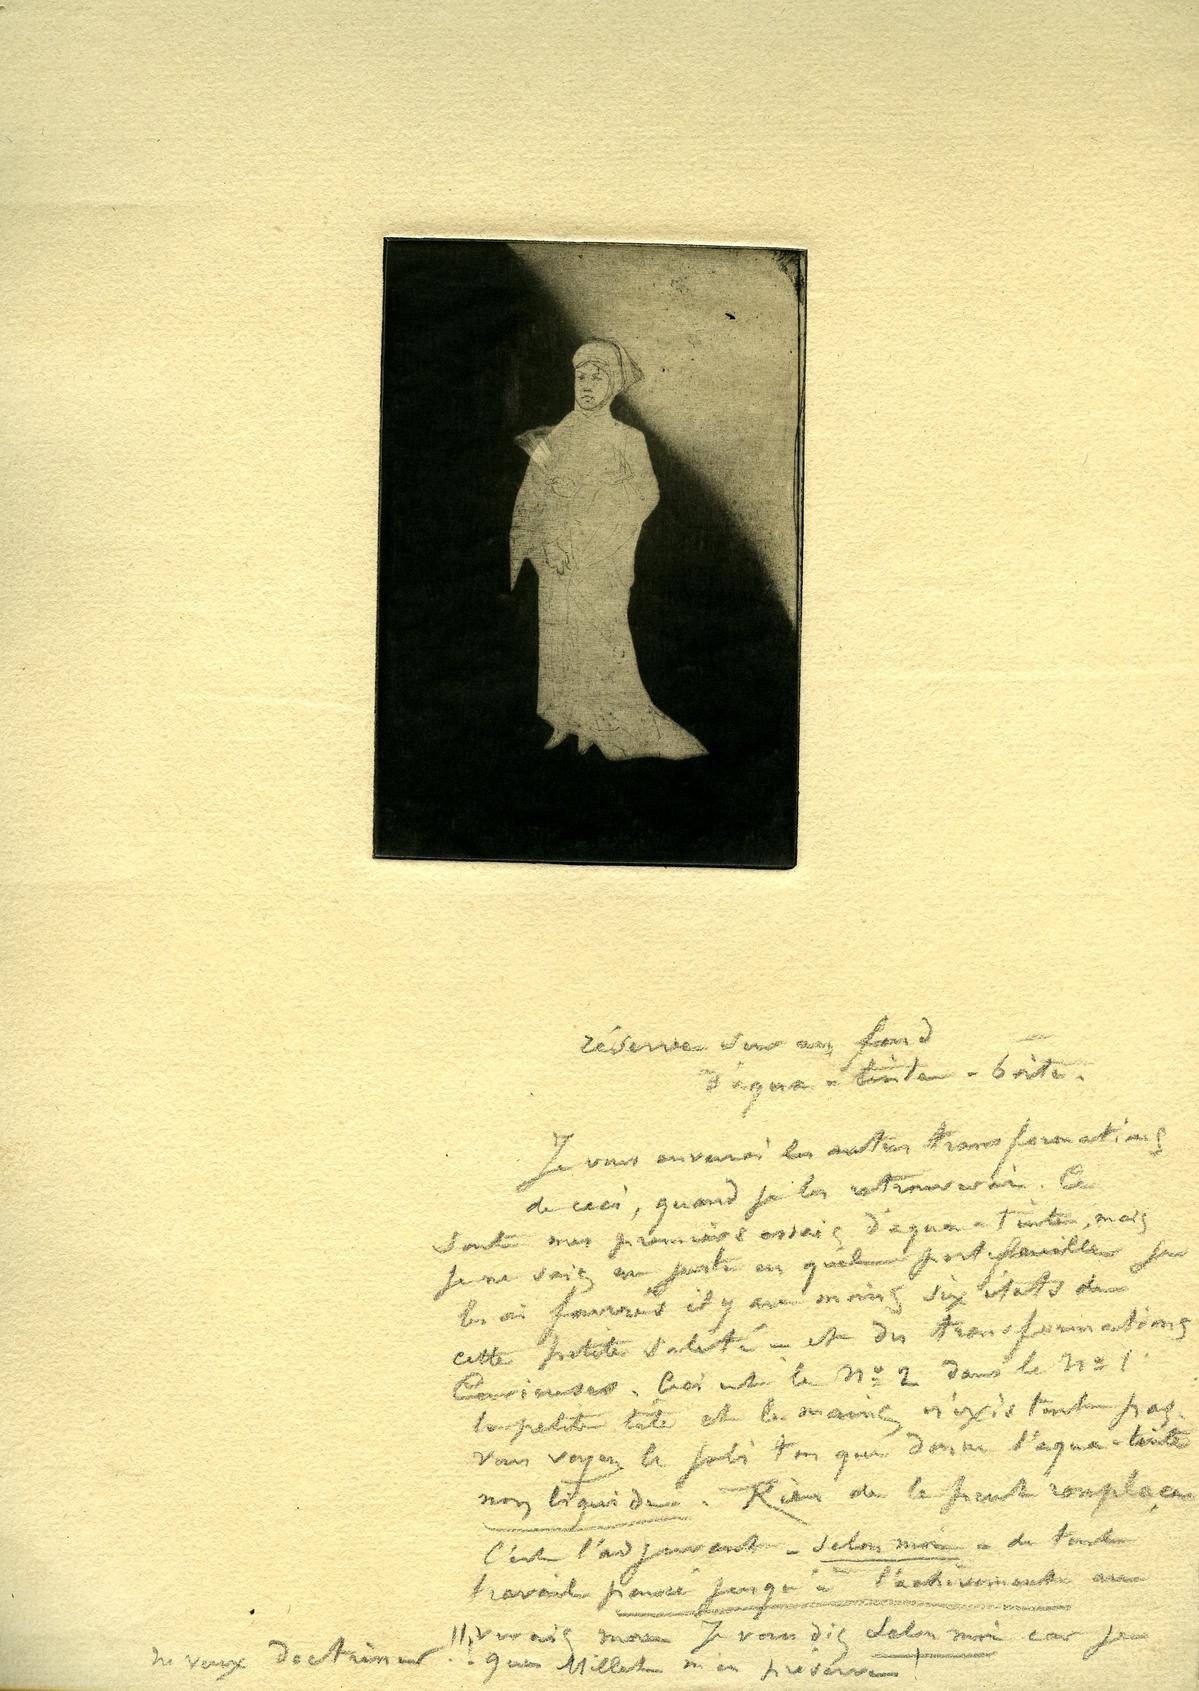 réserve sur un fond
d'aqua-tinte-boite.
Je vous enverrai les autres transformations
de ceci, quand je les retrouverai. Ce
sont mes premiers essais d'aqua-tinte, mais
je ne sais au juste en quel portefeuille je
les ai fourrés il y a au moins six états de
cette petite saleté - et des transformations
Curieuses. Ceci est le Nº 2 dans le Nº 1
la petite tête et les mains n'existent pas.
vous voyez le joli ton que donne l'aqua-tinte
non liquide. Rien ne le peut remplacer
C'est l'adjuvant - selon moi - de tout
travail poussé jusqu'à l'achèvement au
vernis mou Je vous dis selon moi car je
ne veux doctriner!!! que Millet m'en préserve!